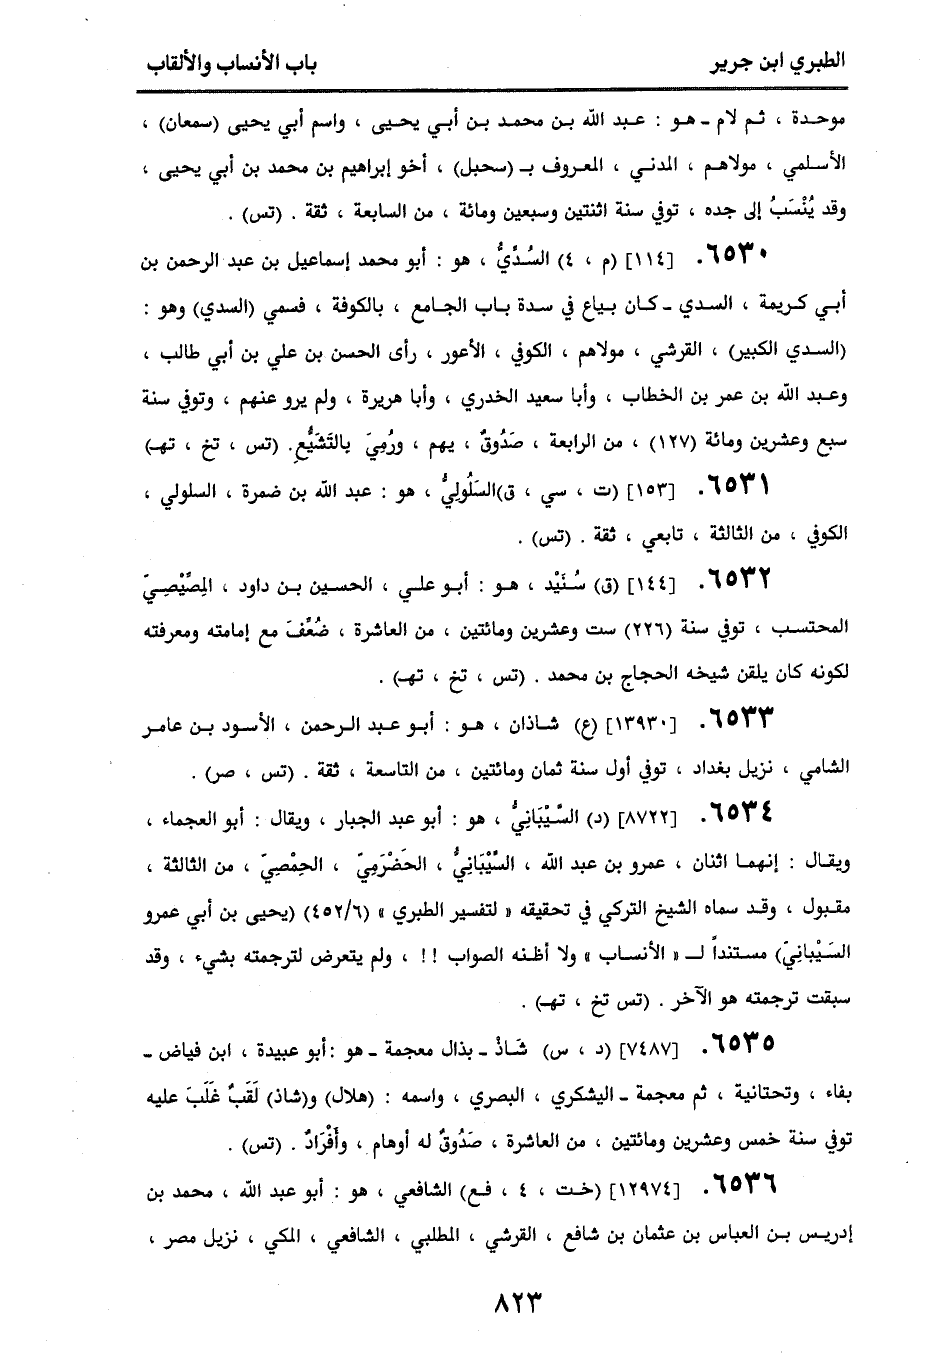 الطبري ابن جرير
باب الأنساب والألقاب
موحدة ، ثم لام ـ هو : عبد الله بن محمد بن أبي يحيى ، واسم أبي يحيى (سمعان) ،
الأسلمي ، مولاهم ، المدني ، المعروف بـ (سحبل) ، أخو إبراهيم بن محمد بن أبي يحيى ،
وقد يُنْسَبُ إلى جده ، توفي سنة اثنتين وسبعين ومائة ، من السابعة ، ثقة . (تس) .
٦٥٣٠. [١١٤] (م ، ٤) السُدِّيُّ ، هو : أبو محمد إسماعيل بن عبد الرحمن بن
أبي كريمة ، السدي ـ كان بياع في سدة باب الجامع ، بالكوفة ، فسمي (السدي) وهو :
(السدي الكبير) ، القرشي ، مولاهم ، الكوفي ، الأعور ، رأى الحسن بن علي بن أبي طالب ،
وعبد الله بن عمر بن الخطاب ، وأبا سعيد الخدري ، وأبا هريرة ، ولم يرو عنهم ، وتوفي سنة
سبع وعشرين ومائة (١٢٧) ، من الرابعة ، صَدُوقٌ ، يهم ، ورُمِيَ بالتَشَيُّعِ. (تس ، تخ ، تهـ)
٦٥٣١. [١٥٣] (ت ، سي ، ق)السَلُولِيُّ ، هو : عبد الله بن ضمرة ، السلولي ،
الكوفي ، من الثالثة ، تابعي ، ثقة . (تس) .
٦٥٣٢. [١٤٤] (ق) سُنَيْد ، هو : أبو علي ، الحسين بن داود ، المِصِّيْصِيّ
المحتسب ، توفي سنة (٢٢٦) ست وعشرين ومائتين ، من العاشرة ، ضُعِّفَ مع إمامته ومعرفته
لكونه كان يلقن شيخه الحجاج بن محمد . (تس ، تخ ، تهـ) .
٦٥٣٣. [١٣٩٣٠] (ع) شاذان ، هو : أبو عبد الرحمن ، الأسود بن عامر
الشامي ، نزيل بغداد ، توفي أول سنة ثمان ومائتين ، من التاسعة ، ثقة . (تس ، صر) .
٦٥٣٤. [٨٧٢٢] (د) السَّيْبَانِيُّ ، هو : أبو عبد الجبار ، ويقال : أبو العجماء ،
ويقال : إنهما اثنان ، عمرو بن عبد الله ، السَّيْبَانِيُّ ، الحَضْرَمِيّ ، الحِمْصِيّ ، من الثالثة ،
مقبول ، وقد سماه الشيخ التركي في تحقيقه « لتفسير الطبري » (٤٥٢/٦) (يحيى بن أبي عمرو
السَيْبانِيّ) مستنداً لـ « الأنساب » ولا أظنه الصواب !! ، ولم يتعرض لترجمته بشيء ، وقد
سبقت ترجمته هو الآخر . (تس تخ ، تهـ) .
٦٥٣٥. [٧٤٨٧] (د ، س) شَاذْ ـ بذال معجمة ـ هو :أبو عبيدة ، ابن فياض ـ
بفاء ، وتحتانية ، ثم معجمة ـ اليشكري ، البصري ، واسمه : (هلال) و(شاذ) لَقَبٌ غَلَبَ عليه
توفي سنة خمس وعشرين ومائتين ، من العاشرة ، صَدُوقٌ له أوهام ، وأَفْرَادٌ . (تس) .
٦٥٣٦. [١٢٩٧٤] (خت ، ٤ ، فع) الشافعي ، هو : أبو عبد الله ، محمد بن
إدريس بن العباس بن عثمان بن شافع ، القرشي ، المطلبي ، الشافعي ، المكي ، نزيل مصر ،
٨٢٣